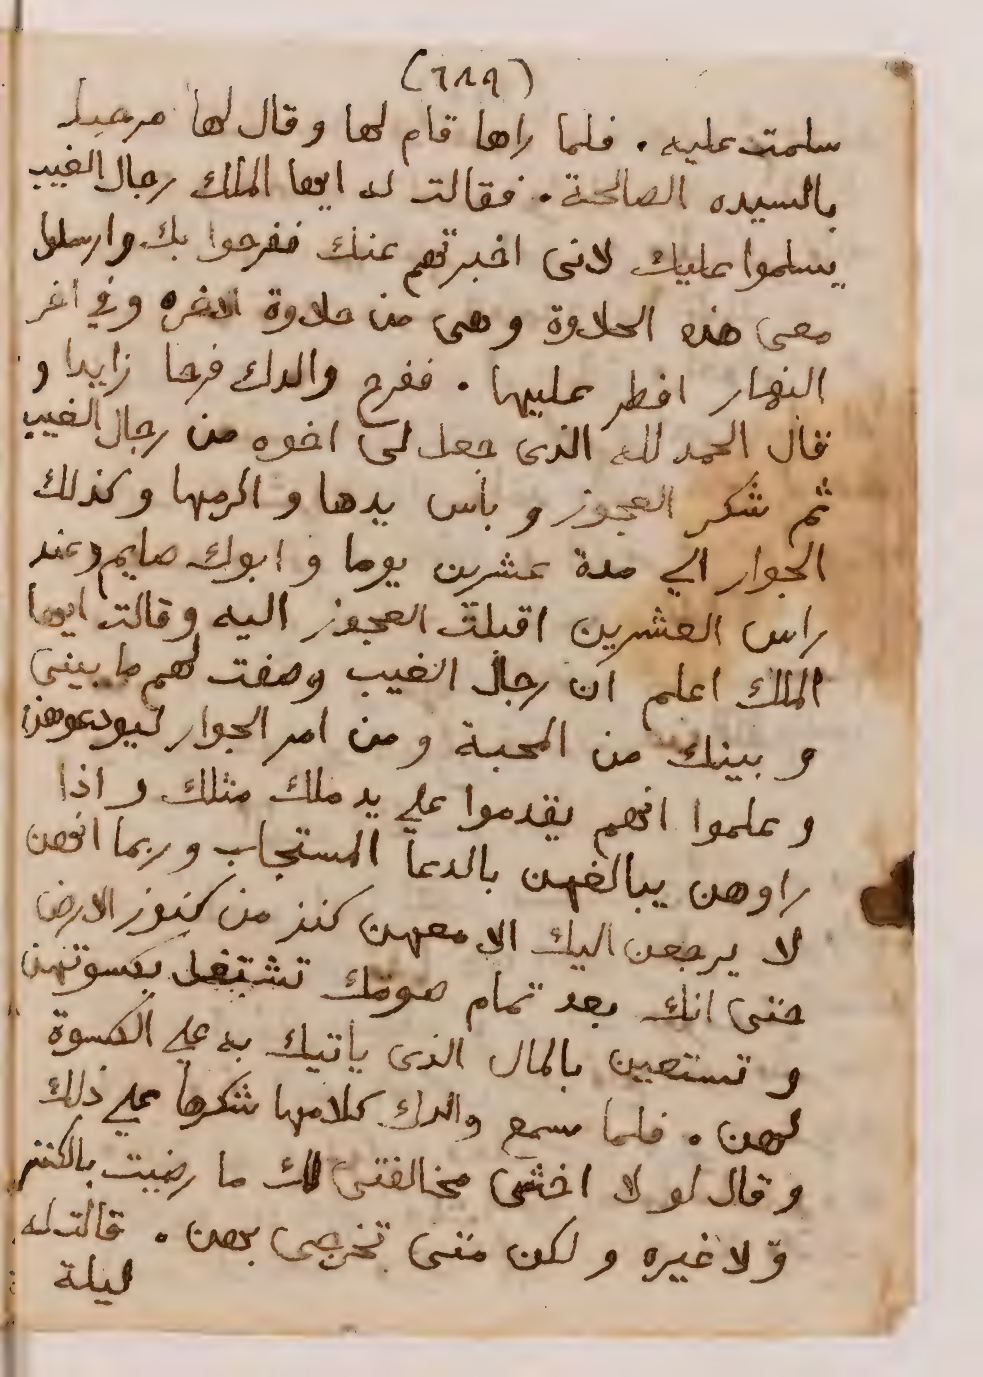 (٦٨٩)
سلمت عليه . فلما راها قام لها وقال لها مرحبا
بالسيده الصالحة . فقالت له ايها الملك رجال الغيب
يسلموا عليك لانى اخبرتهم عنك ففرحوا بك وارسلوا
معى هذه الحلاوة وهى من حلاوة الاخره وفي اخر
النهار افطر عليها . ففرح والدك فرحا زايدا و
قال الحمد لله الذى جعل لى اخوه من رجال الغيب
ثم شكر العجوز و باس يدها و اكرمها وكذلك
الجوار الي مدة عشرين يوما و ابوك صايم وعند
راس العشرين اقبلت العجوز اليه وقالت ايها
الملك اعلم ان رجال الغيب وصفت لهم ما بينى
و بينك من المحبة ومن امر الجوار ليودعوهن
و علموا انهم يقدموا علي يد ملك مثلك و اذا
راوهن يبالغهن بالدعا المستجاب وربما انهن
لا يرجعن اليك الا معهن كنز من كنوز الارض
حتى انك بعد تمام صومك تشتغل بكسوتهن
و تستعين بالمال الذى ياتيك به علي الكسوة
لهن . فلما سمع والدك كلامها شكرها علي ذلك
وقال لو لا اخشى مخالفتى لك ما رضيت بالكنز
و لا غيره و لكن متى تخرجى بهن . قالت له
ليلة